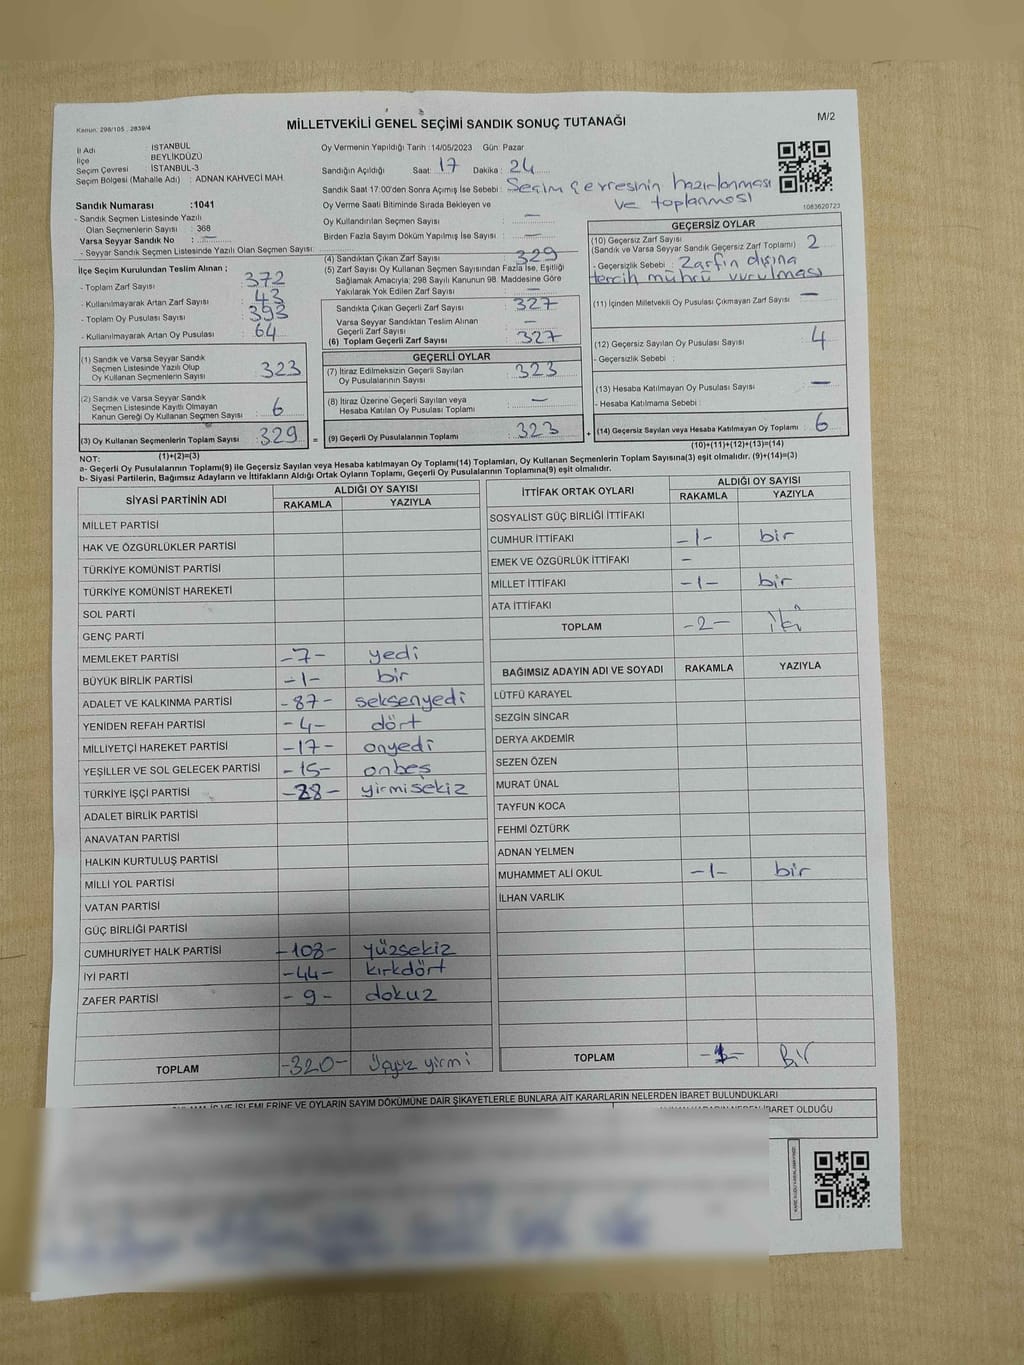 Kanun, 298/105 , 2839/4
MİLLETVEKİLİ GENEL SEÇİMİ SANDIK SONUÇ TUTANAĞI
M/2
İl Adı : İSTANBUL
İlçe BEYLİKDÜZÜ
Seçim Çevresi : İSTANBUL-3
Seçim Bölgesi (Mahalle Adı) : ADNAN KAHVECİ MAH.
Oy Vermenin Yapıldığı Tarih :14/05/2023 Gün: Pazar
Sandığın Açıldığı Saat: 17 Dakika : 24
Sandık Saat 17:00'den Sonra Açımış İse Sebebi : Seçim çevresinin hazırlanması
ve toplanması
Oy Verme Saati Bitiminde Sırada Bekleyen ve
Oy Kullandırılan Seçmen Sayısı : —
Birden Fazla Sayım Döküm Yapılmış İse Sayısı : —
1083620723
Sandık Numarası :1041
- Sandık Seçmen Listesinde Yazılı
Olan Seçmenlerin Sayısı : 368
Varsa Seyyar Sandık No : —
- Seyyar Sandık Seçmen Listesinde Yazılı Olan Seçmen Sayısı:
İlçe Seçim Kurulundan Teslim Alınan ;
- Toplam Zarf Sayısı : 372
- Kullanılmayarak Artan Zarf Sayısı : 43
- Toplam Oy Pusulası Sayısı : 393
- Kullanılmayarak Artan Oy Pusulası : 64
(1) Sandık ve Varsa Seyyar Sandık
Seçmen Listesinde Yazılı Olup
Oy Kullanan Seçmenlerin Sayısı : 323
(2) Sandık ve Varsa Seyyar Sandık
Seçmen Listesinde Kayıtlı Olmayan
Kanun Gereği Oy Kullanan Seçmen Sayısı : 6
(3) Oy Kullanan Seçmenlerin Toplam Sayısı : 329
(1)+(2)=(3)
(4) Sandıktan Çıkan Zarf Sayısı : 329
(5) Zarf Sayısı Oy Kullanan Seçmen Sayısından Fazla İse, Eşitliği
Sağlamak Amacıyla; 298 Sayılı Kanunun 98. Maddesine Göre
Yakılarak Yok Edilen Zarf Sayısı : —
Sandıkta Çıkan Geçerli Zarf Sayısı : 327
Varsa Seyyar Sandıktan Teslim Alınan
Geçerli Zarf Sayısı : —
(6) Toplam Geçerli Zarf Sayısı : 327
GEÇERLİ OYLAR
(7) İtiraz Edilmeksizin Geçerli Sayılan
Oy Pusulalarının Sayısı : 323
(8) İtiraz Üzerine Geçerli Sayılan veya
Hesaba Katılan Oy Pusulası Toplamı : —
= (9) Geçerli Oy Pusulalarının Toplamı : 323
GEÇERSİZ OYLAR
(10) Geçersiz Zarf Sayısı
(Sandık ve Varsa Seyyar Sandık Geçersiz Zarf Toplamı) 2
- Geçersizlik Sebebi : Zarfın dışına
tercih mührü vurulması
(11) İçinden Milletvekili Oy Pusulası Çıkmayan Zarf Sayısı : —
(12) Geçersiz Sayılan Oy Pusulası Sayısı : 4
- Geçersizlik Sebebi :
(13) Hesaba Katılmayan Oy Pusulası Sayısı : —
- Hesaba Katılmama Sebebi :
+ (14) Geçersiz Sayılan veya Hesaba Katılmayan Oy Toplamı : 6
(10)+(11)+(12)+(13)=(14)
NOT:
a- Geçerli Oy Pusulalarının Toplamı(9) ile Geçersiz Sayılan veya Hesaba katılmayan Oy Toplamı(14) Toplamları, Oy Kullanan Seçmenlerin Toplam Sayısına(3) eşit olmalıdır. (9)+(14)=(3)
b- Siyasi Partilerin, Bağımsız Adayların ve İttifakların Aldığı Oyların Toplamı, Geçerli Oy Pusulalarının Toplamına(9) eşit olmalıdır.
SİYASİ PARTİNİN ADI ALDIĞI OY SAYISI
RAKAMLA YAZIYLA
MİLLET PARTİSİ
HAK VE ÖZGÜRLÜKLER PARTİSİ
TÜRKİYE KOMÜNİST PARTİSİ
TÜRKİYE KOMÜNİST HAREKETİ
SOL PARTİ
GENÇ PARTİ
MEMLEKET PARTİSİ -7- yedi
BÜYÜK BİRLİK PARTİSİ -1- bir
ADALET VE KALKINMA PARTİSİ -87- seksenyedi
YENİDEN REFAH PARTİSİ -4- dört
MİLLİYETÇİ HAREKET PARTİSİ -17- onyedi
YEŞİLLER VE SOL GELECEK PARTİSİ -15- onbeş
TÜRKİYE İŞÇİ PARTİSİ -28- yirmisekiz
ADALET BİRLİK PARTİSİ
ANAVATAN PARTİSİ
HALKIN KURTULUŞ PARTİSİ
MİLLİ YOL PARTİSİ
VATAN PARTİSİ
GÜÇ BİRLİĞİ PARTİSİ
CUMHURİYET HALK PARTİSİ -108- yüzsekiz
İYİ PARTİ -44- kırkdört
ZAFER PARTİSİ -9- dokuz
TOPLAM -320- Üçyüz yirmi
İTTİFAK ORTAK OYLARI ALDIĞI OY SAYISI
RAKAMLA YAZIYLA
SOSYALİST GÜÇ BİRLİĞİ İTTİFAKI
CUMHUR İTTİFAKI -1- bir
EMEK VE ÖZGÜRLÜK İTTİFAKI -
MİLLET İTTİFAKI -1- bir
ATA İTTİFAKI
TOPLAM -2- iki
BAĞIMSIZ ADAYIN ADI VE SOYADI RAKAMLA YAZIYLA
LÜTFÜ KARAYEL
SEZGİN SİNCAR
DERYA AKDEMİR
SEZEN ÖZEN
MURAT ÜNAL
TAYFUN KOCA
FEHMİ ÖZTÜRK
ADNAN YELMEN
MUHAMMET ALİ OKUL -1- bir
İLHAN VARLIK
TOPLAM -1- Bir
İŞLEMLERİNE VE OYLARIN SAYIM DÖKÜMÜNE DAİR ŞİKAYETLERLE BUNLARA AİT KARARLARIN NELERDEN İBARET BULUNDUKLARI
İBARET OLDUĞU